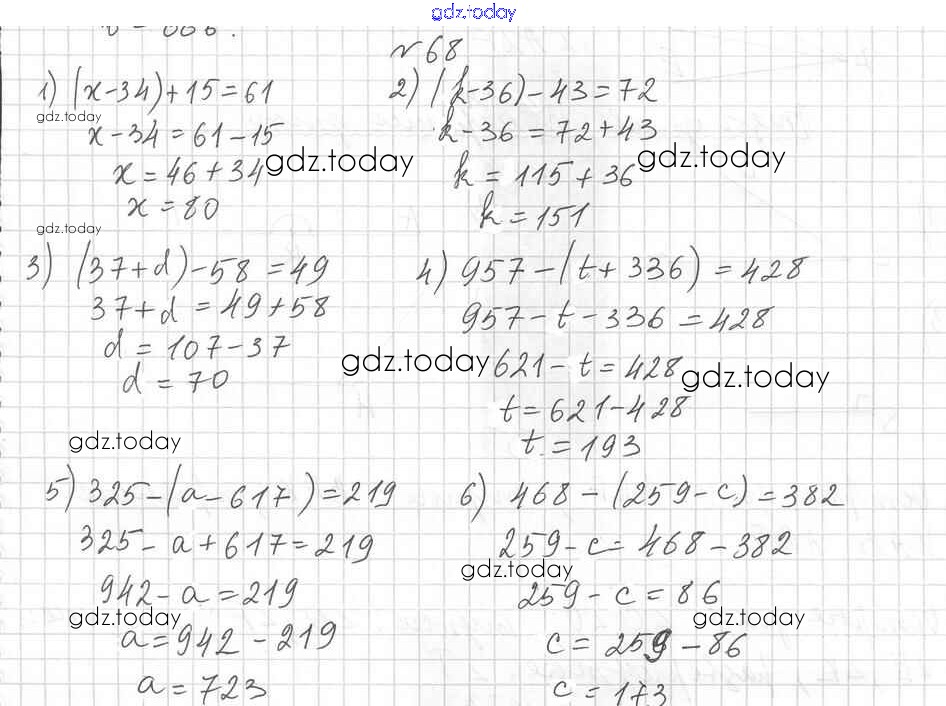 gdz.today
№68
1) (x-34)+15=61
gdz.today
x-34=61-15
x=46+34
gdz.today
x=80
2) (k-36)-43=72
k-36=72+43
gdz.today
k=115+36
k=151
gdz.today
3) (37+d)-58=49
37+d=49+58
d=107-37
gdz.today
d=70
4) 957-(t+336)=428
957-t-336=428
621-t=428
gdz.today
t=621-428
t=193
gdz.today
5) 325-(a-617)=219
325-a+617=219
942-a=219
gdz.today
a=942-219
a=723
6) 468-(259-c)=382
259-c=468-382
gdz.today
259-c=86
gdz.today
c=259-86
c=173